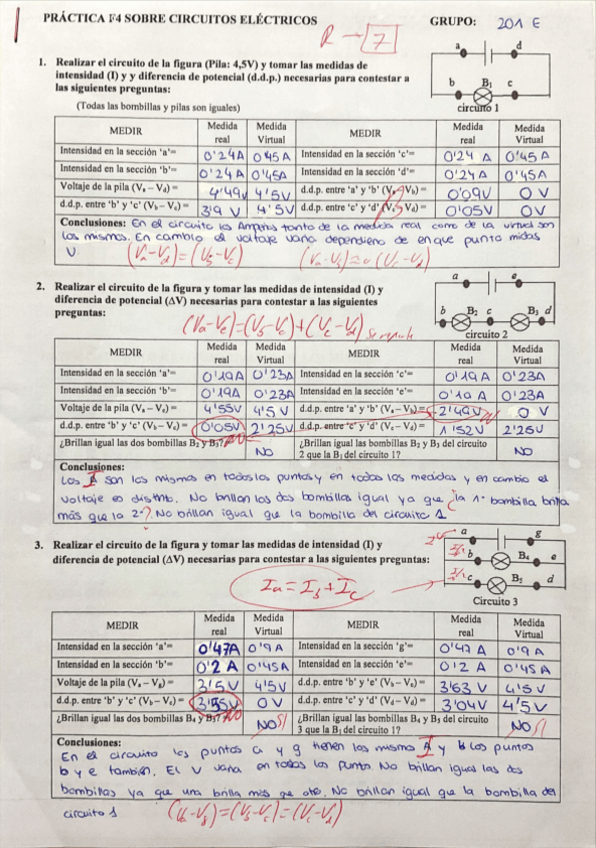 PRÁCTICA F4 SOBRE CIRCUITOS ELÉCTRICOS GRUPO: 201 E
R → 7
1. Realizar el circuito de la figura (Pila: 4,5V) y tomar las medidas de
intensidad (I) y y diferencia de potencial (d.d.p.) necesarias para contestar a
las siguientes preguntas:
(Todas las bombillas y pilas son iguales)
a d
b B₁ c
circuito 1
MEDIR Medida real Medida Virtual MEDIR Medida real Medida Virtual
Intensidad en la sección ‘a’= 0'24A 0'45A Intensidad en la sección ‘c’= 0'24 A 0'45A
Intensidad en la sección ‘b’= 0'24 A 0'45A Intensidad en la sección ‘d’= 0'24 A 0'45A
Voltaje de la pila (Vₐ – V_d) = 4'49V 4'5V d.d.p. entre ‘a’ y ‘b’ (Vₐ – V_b) = 0'09V 0 V
d.d.p. entre ‘b’ y ‘c’ (V_b – V_c) = 3'9 V 4'5V d.d.p. entre ‘c’ y ‘d’ (V_c – V_d) = 0'05V 0V
Conclusiones: En el circuito los Amperios tanto de la medida real como de la virtual son
los mismos. En cambio el voltaje varia dependieno de en que punto midas
V (Va-Vd)=(Vb-Vc) (Va-Vb)≈0(Vc-Vd)
2. Realizar el circuito de la figura y tomar las medidas de intensidad (I) y
diferencia de potencial (ΔV) necesarias para contestar a las siguientes
preguntas:
(Va-Ve)=(Vb-Vc)+(Vc-Vd) Se reparte
a e
b B₂ c B₃ d
circuito 2
MEDIR Medida real Medida Virtual MEDIR Medida real Medida Virtual
Intensidad en la sección ‘a’= 0'19A 0'23A Intensidad en la sección ‘c’= 0'19 A 0'23A
Intensidad en la sección ‘b’= 0'19A 0'23A Intensidad en la sección ‘e’= 0'19 A 0'23A
Voltaje de la pila (Vₐ – V_e) = 4'55V 4'5 V d.d.p. entre ‘a’ y ‘b’ (Vₐ – V_b) = 2'49V 0 V
d.d.p. entre ‘b’ y ‘c’ (V_b – V_c) = 0'05V 2'25V d.d.p. entre ‘c’ y ‘d’ (V_c – V_d) = 1'52V 2'25V
¿Brillan igual las dos bombillas B₂ y B₃? NO ¿Brillan igual las bombillas B₂ y B₃ del circuito
2 que la B₁ del circuito 1? NO
Conclusiones:
Los A son los mismos en todos los puntos y en todas las medidas y en cambio el
I
voltaje es distinto. No brillan las dos bombillas igual ya que la 1ª bombilla brilla
más que la 2ª? No brillan igual que la bombilla del circuito 1
3. Realizar el circuito de la figura y tomar las medidas de intensidad (I) y
diferencia de potencial (ΔV) necesarias para contestar a las siguientes preguntas:
Ia = Ib + Ic
a g
b B₄ e
c B₅ d
Circuito 3
MEDIR Medida real Medida Virtual MEDIR Medida real Medida Virtual
Intensidad en la sección ‘a’= 0'47A 0'9A Intensidad en la sección ‘g’= 0'47 A 0'9A
Intensidad en la sección ‘b’= 0'2 A 0'45A Intensidad en la sección ‘e’= 0'2 A 0'45A
Voltaje de la pila (Vₐ – V_g) = 3'5V 4'5V d.d.p. entre ‘b’ y ‘e’ (V_b – V_e) = 3'63 V 4'5 V
d.d.p. entre ‘b’ y ‘c’ (V_b – V_c) = 0V d.d.p. entre ‘c’ y ‘d’ (V_c – V_d) = 3'04V 4'5V
¿Brillan igual las dos bombillas B₄ y B₅? NO NO SI ¿Brillan igual las bombillas B₄ y B₅ del circuito
3 que la B₁ del circuito 1? NO SI
Conclusiones:
En el circuito los puntos a y g tienen los mismos A y los puntos
I
b y e también. El V varia en todos los puntos. No brillan igual las dos
bombillas ya que una brilla más que otra. No brillan igual que la bombilla del
circuito 1 (Va-Vg)=(Vb-Ve)=(Vc-Vd)